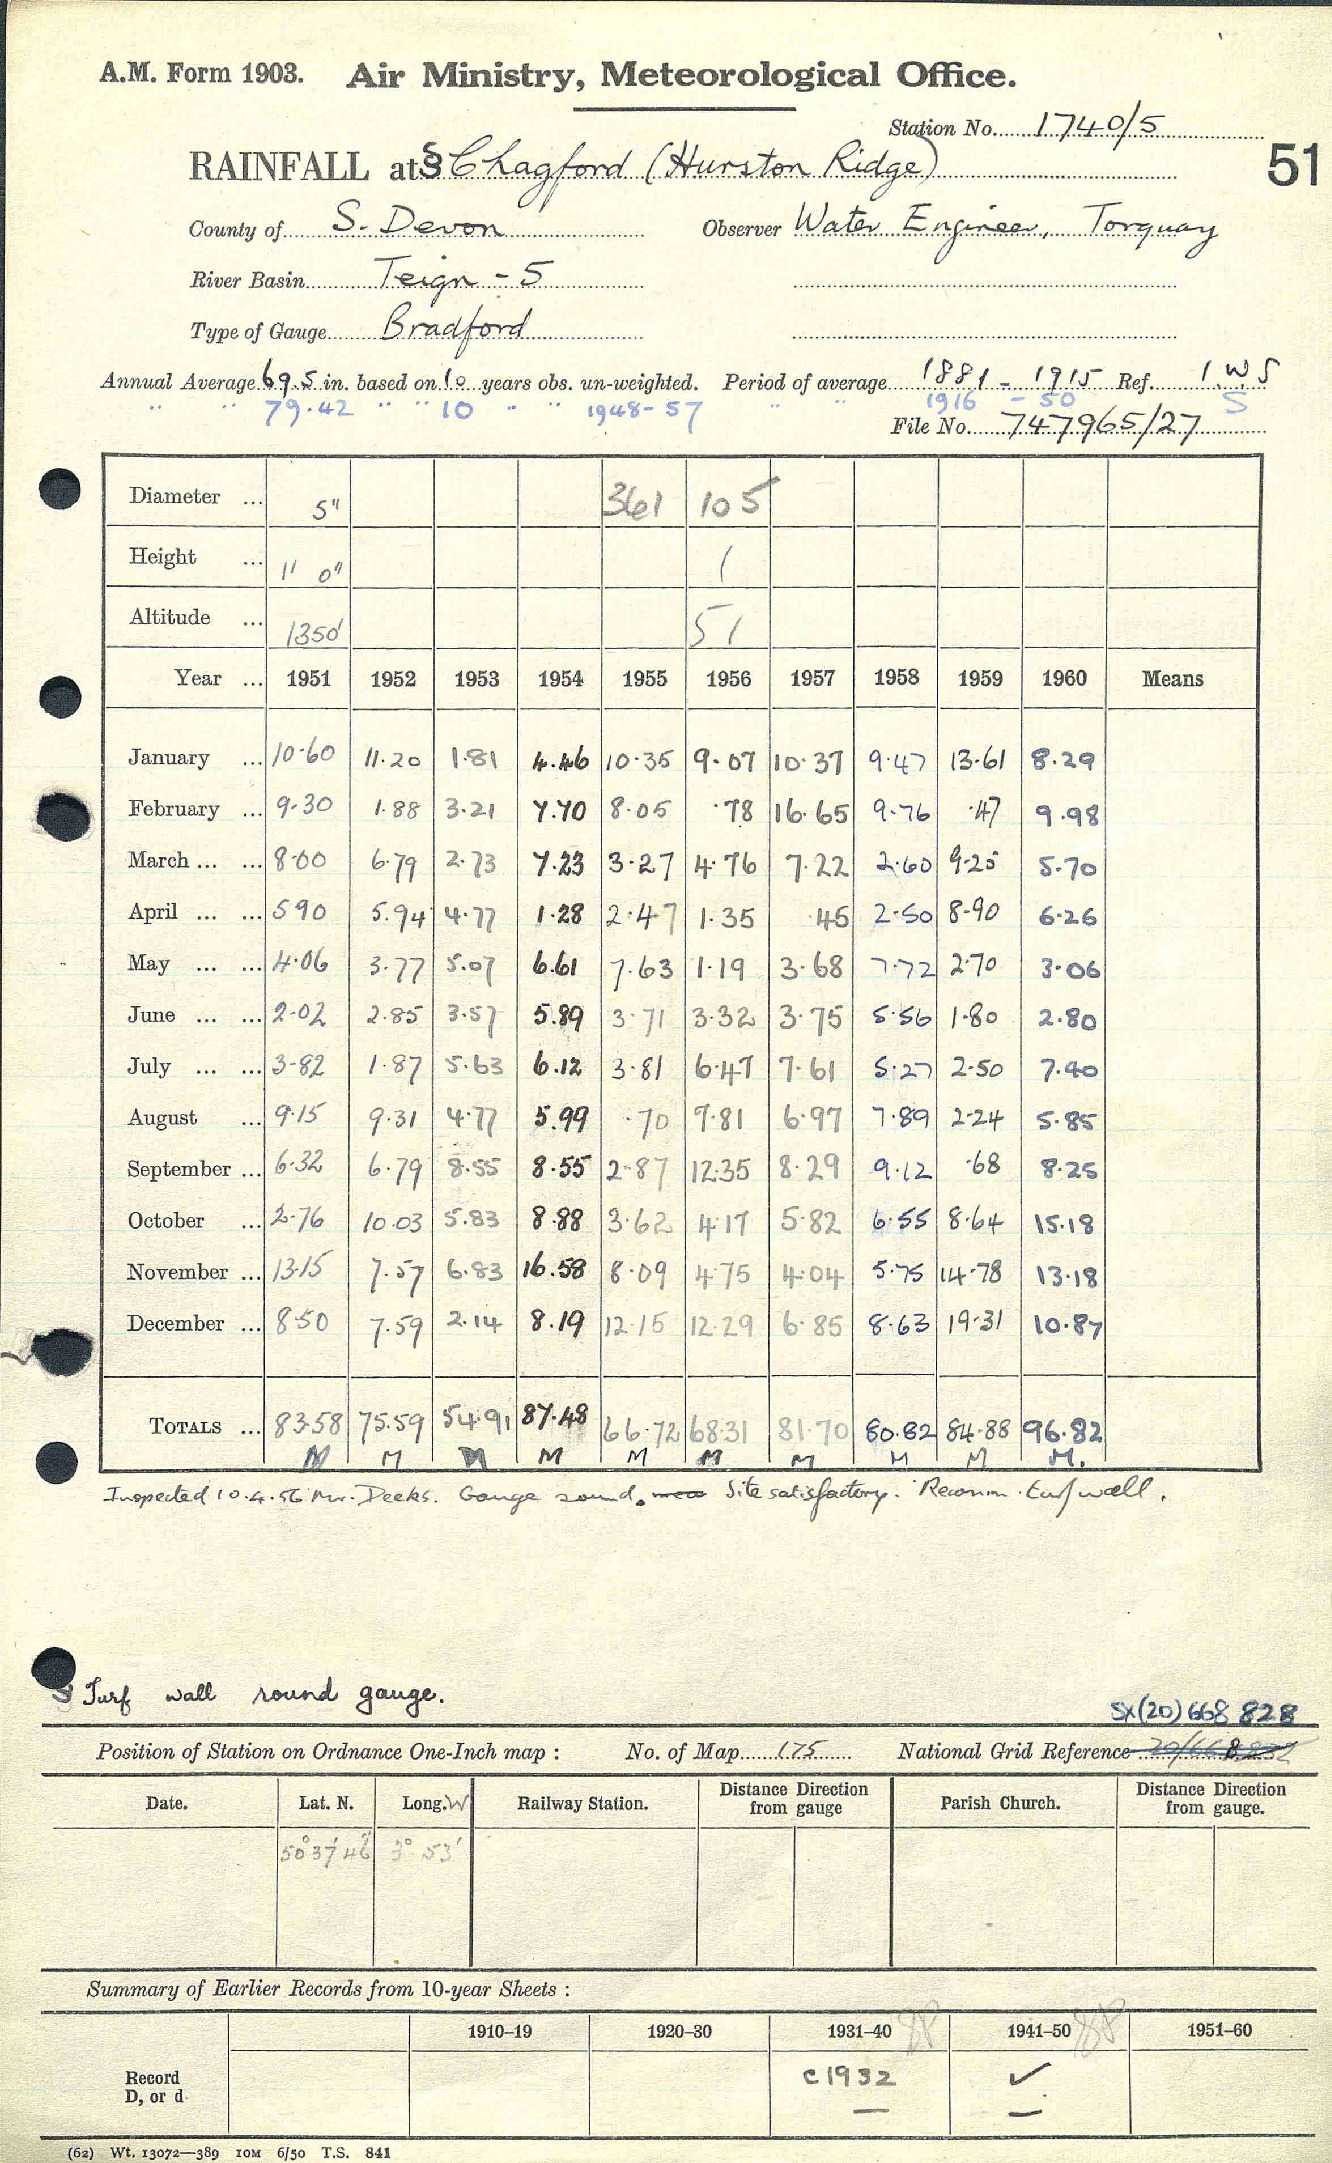 A.M. Form 1903. Air Ministry, Meteorological Office.
Station No. 1740/5
RAINFALL at § Chagford (Hurston Ridge)
51
County of S. Devon Observer Water Engineer, Torquay
River Basin Teign - 5
Type of Gauge Bradford
Annual Average 69.5 in. based on 10 years obs. un-weighted. Period of average 1881 - 1915 Ref. I.W.S
" " 79.42 " " 10 " " 1948-57 " " 1916 - 50 S
File No. 747965/27
Diameter ... 5" 361 105
Height ... 1' 0" 1
Altitude ... 1350' 51
Year ... 1951 1952 1953 1954 1955 1956 1957 1958 1959 1960 Means
January ... 10.60 11.20 1.81 4.46 10.35 9.07 10.37 9.47 13.61 8.29
February ... 9.30 1.88 3.21 7.70 8.05 .78 16.65 9.76 .47 9.98
March ... ... 8.00 6.79 2.73 7.23 3.27 4.76 7.22 2.60 9.25 5.70
April ... ... 590 5.94 4.77 1.28 2.47 1.35 .45 2.50 8.90 6.26
May ... ... 4.06 3.77 5.07 6.61 7.63 1.19 3.68 7.72 2.70 3.06
June ... ... 2.02 2.85 3.57 5.89 3.71 3.32 3.75 5.56 1.80 2.80
July ... ... 3.82 1.87 5.63 6.12 3.81 6.47 7.61 5.27 2.50 7.40
August ... 9.15 9.31 4.77 5.99 .70 7.81 6.97 7.89 2.24 5.85
September ... 6.32 6.79 8.55 8.55 2.87 12.35 8.29 9.12 .68 8.25
October ... 2.76 10.03 5.83 8.88 3.62 4.17 5.82 6.55 8.64 15.18
November ... 13.15 7.57 6.83 16.58 8.09 4.75 4.04 5.75 14.78 13.18
December ... 8.50 7.59 2.14 8.19 12.15 12.29 6.85 8.63 19.31 10.87
TOTALS ... 83.58 75.59 54.91 87.48 66.72 68.31 81.70 80.82 84.88 96.82
M M M M M M M M M M.
Inspected 10.4.56 Mr. Deeks. Gauge sound. Site satisfactory. Recomm. turf wall.
§ Turf wall round gauge.
SX(20) 668 828
Position of Station on Ordnance One-Inch map : No. of Map 175 National Grid Reference
Date. Lat. N. Long. W Railway Station. Distance from gauge Direction Parish Church. Distance from gauge. Direction
50° 37' 46" 3° 53'
Summary of Earlier Records from 10-year Sheets :
1910–19 1920–30 1931–40 1941–50 1951–60
Record D, or d c1932 ✓
— —
(62) Wt. 13072—389 10M 6/50 T.S. 841